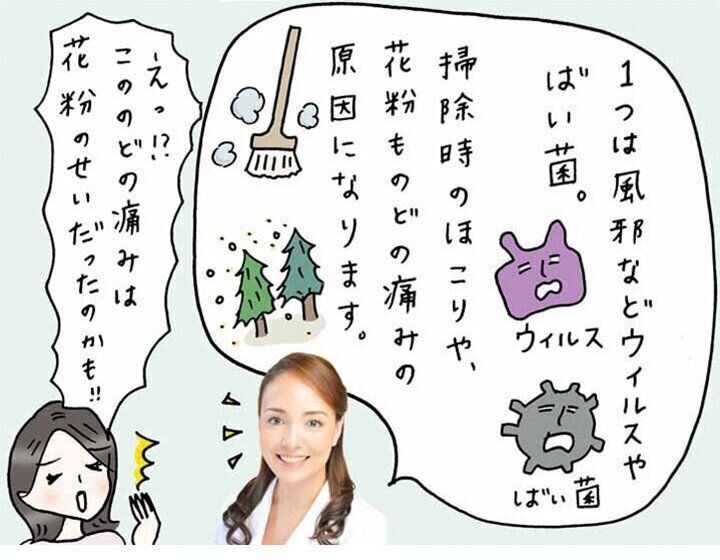 1つは風邪などウィルスや
ばい菌。
ウィルス
ばい菌
掃除時のほこりや、
花粉ものどの痛みの
原因になります。
えっ!?
このののどの痛みは
花粉のせいだったのかも!!